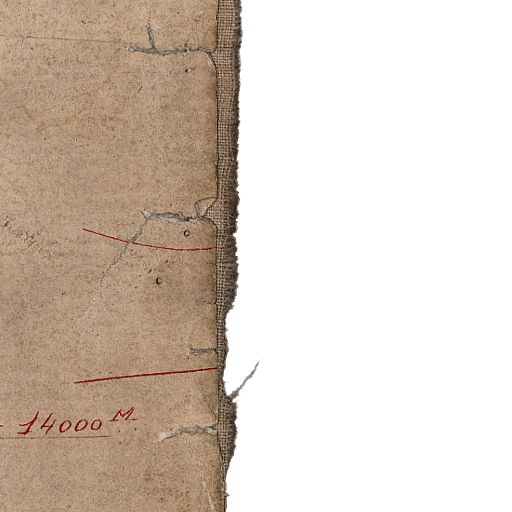 14000 M